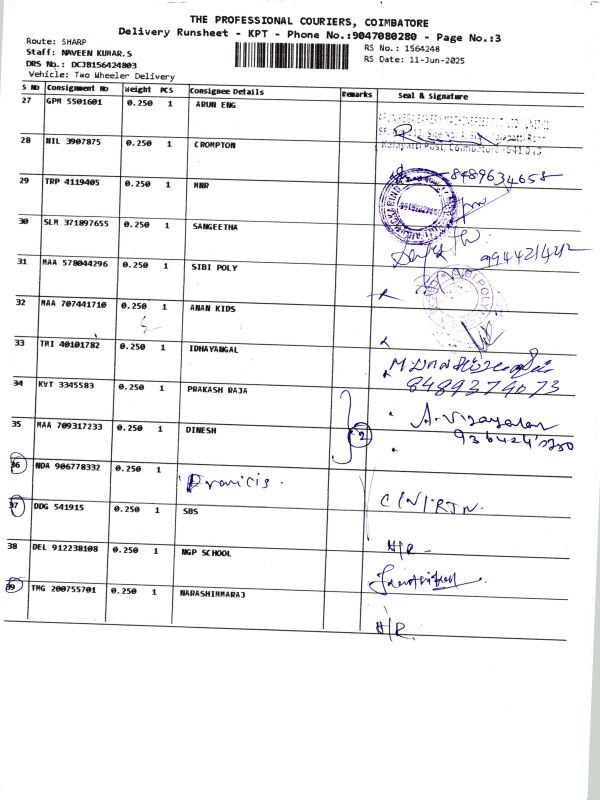 THE PROFESSIONAL COURIERS, COIMBATORE
Delivery Runsheet - KPT - Phone No.:9047080280 - Page No.:3
Route: SHARP
Staff: NAVEEN KUMAR.S
DRS No.: DCJB156424803
Vehicle: Two Wheeler Delivery
RS No.: 1564248
RS Date: 11-Jun-2025
S No Consignment No Weight PCS Consignee Details Remarks Seal & Signature
27 GPM 5501601 0.250 1 ARUN ENG
28 NIL 3907875 0.250 1 CROMPTON
8489634658
29 TRP 4119405 0.250 1 MNR
30 SLM 371897655 0.250 1 SANGEETHA
9944214212
31 MAA 578044296 0.250 1 SIBI POLY
32 MAA 707441710 0.250 1 ANAN KIDS
33 TMI 40101782 0.250 1 IDHAYANGAL
8489379073
34 KVT 3345583 0.250 1 PRAKASH RAJA
35 MAA 709317233 0.250 1 DINESH 2
36 NDA 906778332 0.250 1
37 DDG 541915 0.250 1 SBS C/N/RTN.
38 DEL 912238108 0.250 1 NGP SCHOOL H/R
39 TMG 200755701 0.250 1 NARASHIMMARAJ
H/R